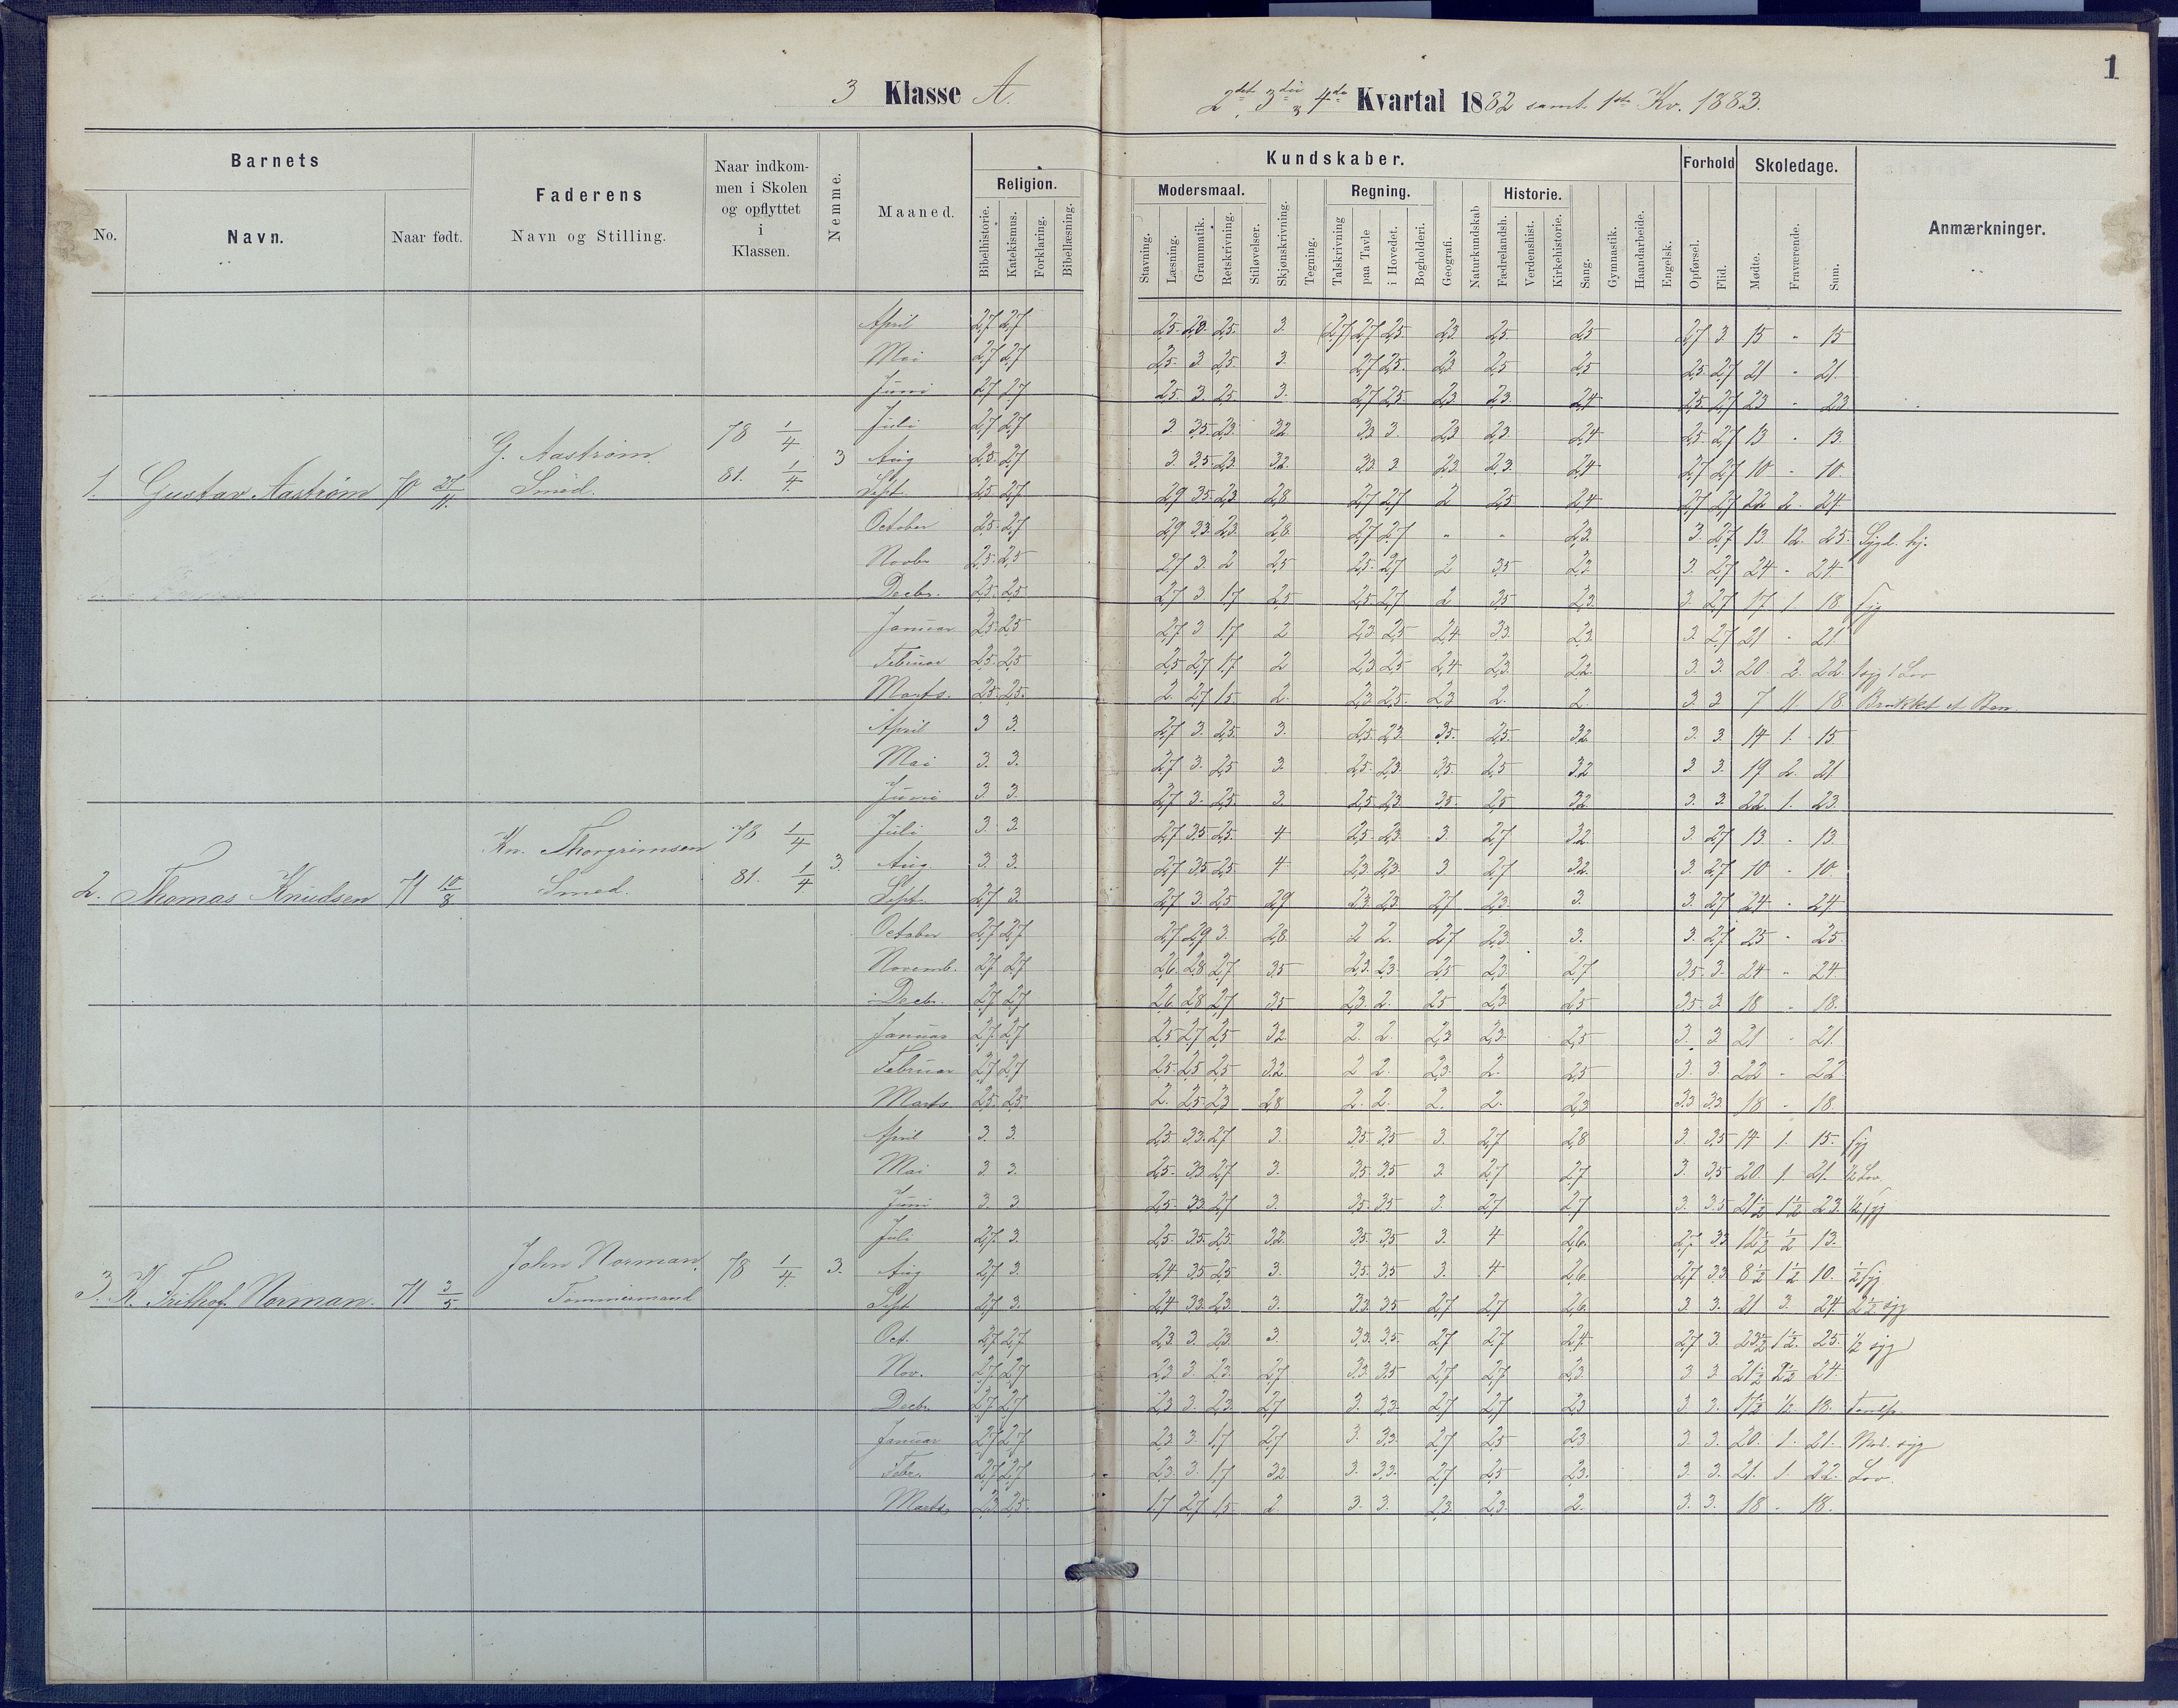 1
3 Klasse A.
2det, 3die, 4de Kvartal 1882 samt 1ste Kv. 1883.
Barnets
No.
Navn.
Naar født.
Faderens
Navn og Stilling.
Naar indkom-
men i Skolen
og opflyttet
i
Klassen.
Nemme.
Maaned.
Kundskaber.
Religion.
Bibelhistorie.
Katekismus.
Forklaring.
Bibellæsning.
Modersmaal.
Stavning.
Læsning.
Grammatik.
Retskrivning.
Stiløvelser.
Skjønskrivning.
Tegning.
Regning.
Talskrivning
paa Tavle
i Hovedet.
Bogholderi.
Geografi.
Naturkundskab
Historie.
Fædrelandsh.
Verdenshist.
Kirkehistorie.
Sang.
Gymnastik.
Haandarbeide.
Engelsk.
Forhold
Opførsel.
Flid.
Skoledage.
Mødte.
Fraværende.
Sum.
Anmærkninger.
1. Gustav Aastrøm 70 27/11. G. Aastrøm. Smed. 78 1/4 81. 1/4. 3
April 2,7 2,7 2,5. 2,5. 3. (2,7) 2,7 2,5. 2,3. 2,5. 2,5 2,7 3. 15 " 15
Mai 2,7 2,7 2,5. 3. 2,5. 3. 2,7 2,5. 2,3 2,5 2,5 2,5. 2,7 21 " 21.
Juni 2,7 2,7 2,5. 3. 2,5. 3. 2,7 2,5. 2,3. 2,3. 2,4 2,5. 2,7 23 " 23
Juli 2,7 2,7 3. 3,5. 2,3. 3,2 3,3 3. 2,3 2,3. 2,4 2,5 2,7 13 " 13.
Aug 2,5. 2,7 3. 3,5 2,3. 3,2. 3,3. 3. 2,3. 2,3. 2,4 2,7 2,7 10 " 10.
Sept. 2,5 2,7 2,9 3,5. 2,3 2,8 2,7 2,7 2 2,5 2,4 2,7 2,7 22 2. 24
October 2,5. 2,7 2,9 3,3. 2,3. 2,8. 2,7 2,7 " " 2,3. 3. 2,7 13. 12. 25.
Novbr 2,5. 2,5 2,7 3. 2 2,5 2,5. 2,7 2 3,5 2,3 3. 2,7 24 " 24
Decbr. 2,5. 2,5 2,7 3 1,7 2,5 2,5 2,7 2 3,5 2,3. 3 2,7 17 1. 18. syg
Januar 2,5. 2,5 2,7 3 1,7 2 2,3. 2,5 2,4 3,3. 2,3 3. 2,7 21 " 21
Februar 2,5. 2,5 2,5 2,7 1,7. 2 2,3 2,5 2,4 2,3. 2,2. 3. 3. 20. 2. 22. 1 syg 1 Lov
Marts. 2,5. 2,5. 2. 2,7 1,5. 2. 2,3 2,5. 2,3 2. 2. 3. 3 7 11 18. Brækket et Ben.
2. Thomas Knudsen 71 10/8 Kn. Thorgrimsen Smed. 78 1/4 81. 1/4 3.
April 3 3. 2,7 3. 2,5. 3. 2,5 2,3. 3,5. 2,5. 3,2 3. 3. 14 1. 15
Mai 3. 3. 2,7 3. 2,5 3. 2,5. 2,3. 3,5. 2,5 3,2 3 3. 19 2. 21.
Juni 3 3. 2,7 3. 2,5. 3. 2,5 2,3. 3,5. 2,5 3,2 3. 3. 22. 1. 23.
Juli 3. 3. 2,7 3,5. 2,5. 4 2,5 2,3. 3. 2,7 3,2. 3. 2,7 13. " 13.
Aug. 3. 3. 2,7 3,5 2,5. 4 2,3. 2,3. 3 2,7 3,2. 3. 2,7 10 " 10.
Sept. 2,7 3. 2,7 3. 2,5 2,9 2,3. 2,3. 2,7 2,3. 3. 3. 2,7 24 " 24
October 2,7 2,7 2,7 2,9 3. 2,8. 2 2. 2,7 2,3. 3. 3. 2,7. 25 " 25.
Novemb. 2,7 2,7 2,6. 2,8 2,7 3,5 2,3. 2,3. 2,5 2,3. 2,7 3,5. 3. 24 " 24
Decbr. 2,7 2,7 2,6. 2,8 2,7 3,5 2,3. 2. 2,5 2,3. 2,5 3,5. 3 18 " 18.
Januar 2,7. 2,7 2,5 2,7 2,5 3,2. 2. 2. 2,3 2,3. 2,5 3. 3 21 " 21.
Februar 2,7 2,7 2,5. 2,5 2,5 3,2. 2 2. 2,3. 2. 2,5 3. 3. 22 " 22
Marts 2,5. 2,5. 2. 2,5 2,3 2,8 2. 2. 2. 2. 2,3 3,3 3,3. 18 " 18.
3. K. Frithof Norman. 71 3/5 John Norman. Tømmermand 78 1/4. 3.
April 3. 3. 2,5. 3,3. 2,7 3. 3,5 3,5 3. 2,7 2,8 3. 3,5 14 1. 15. syg
Mai 3 3. 2,5. 3,3. 2,7 3. 3,5 3,5 3. 2,7 2,7 3. 3,5 20. 1. 21. 1/2 Lov
Juni 3. 3. 2,5. 3,3. 2,7 3. 3,5. 3,5 3. 2,7 2,7 3. 3,5 21 1/2 1 1/2 23. 1/2 syg
Juli 2,7. 3. 2,5. 3,5. 2,5. 3,2. 3,5 3,5 3. 4 2,6. 2,7 3,3 12 1/2 1/2 13.
Aug 2,7 3. 2,4 3,5 2,5 3. 3,5. 3,5 3. 4 2,6. 2,7 3,3. 8 1/2 1 1/2 10. 1/2 syg
Sept 2,7 3. 2,4 3,3. 2,3. 3. 3,3. 3,5 2,7 2,7 2,6. 3. 3. 21 3. 24. 2 1/2 syg
Oct. 2,7 2,7 2,3. 3. 2,3. 3. 3,3. 3,5. 2,7 2,7 2,4. 2,7 3. 23 1/2 1 1/2 25. 1/2 syg
Nov. 2,7. 2,7 2,3 3. 2,3. 2,7 3,3 3,5 2,7 2,7 2,3. 3 3. 21 1/2 2 1/2 24.
Decbr. 2,7. 2,7 2,3 3. 2,3. 2,7 3. 3,3. 2,7 2,7 2,3 3. 3. 17 1/2 1/2 18.
Januar 2,7 2,7. 2,3 3. 1,7 2,7 3. 3,3. 2,7 2,5 2,3. 3. 3. 20. 1. 21. syg
Febr. 2,7 2,7 2,3. 3. 1,7 3,2 3. 3,3. 2,7 2,5 2,3. 3. 3. 21. 1. 22. Lov.
Marts 2,3. 2,5. 1,7 2,7 1,5 2. 3. 3. 2,3. 2,3. 2. 3. 3. 18 " 18.